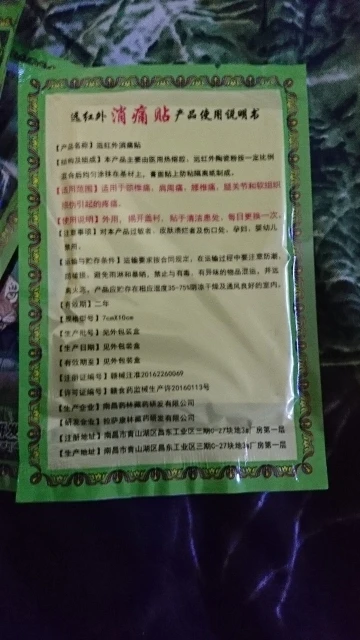 远红外消痛贴产品使用说明书
【产品名称】远红外消痛贴
【结构及组成】本产品主要由医用热熔胶，远红外陶瓷粉按一定比例
混合后均匀涂抹在基材上，膏面贴上防粘隔离纸制成。
【适用范围】适用于颈椎痛、肩周痛、腰椎痛、腿关节和软组织
损伤引起的疼痛。
【使用说明】外用，揭开盖衬，贴于清洁患处，每日更换一次。
【注意事项】对本产品过敏者、皮肤溃烂者及伤口处、孕妇、婴幼儿
禁用。
【运输与贮存条件】运输要求按合同规定，在运输过程中要注意防潮、
防破损，避免雨淋和暴晒，禁止与有毒、有异味的物品混运，并远
离火源。产品应贮存在相应湿度35-75%阴凉干燥及通风良好的室内。
【有效期】二年
【规格型号】7cmX10cm
【生产批号】见外包装盒
【生产日期】见外包装盒
【有效期至】见外包装盒
【注册证编号】赣械注准20162260069
【许可证编号】赣食药监械生产许20160113号
【生产企业】南昌药林藏药研发有限公司
【研发企业】拉萨康林藏药研发有限公司
【注册地址】南昌市青山湖区昌东工业区三期C-27块地3#厂房第一层
【生产地址】南昌市青山湖区昌东工业区三期C-27块地3#厂房第一层